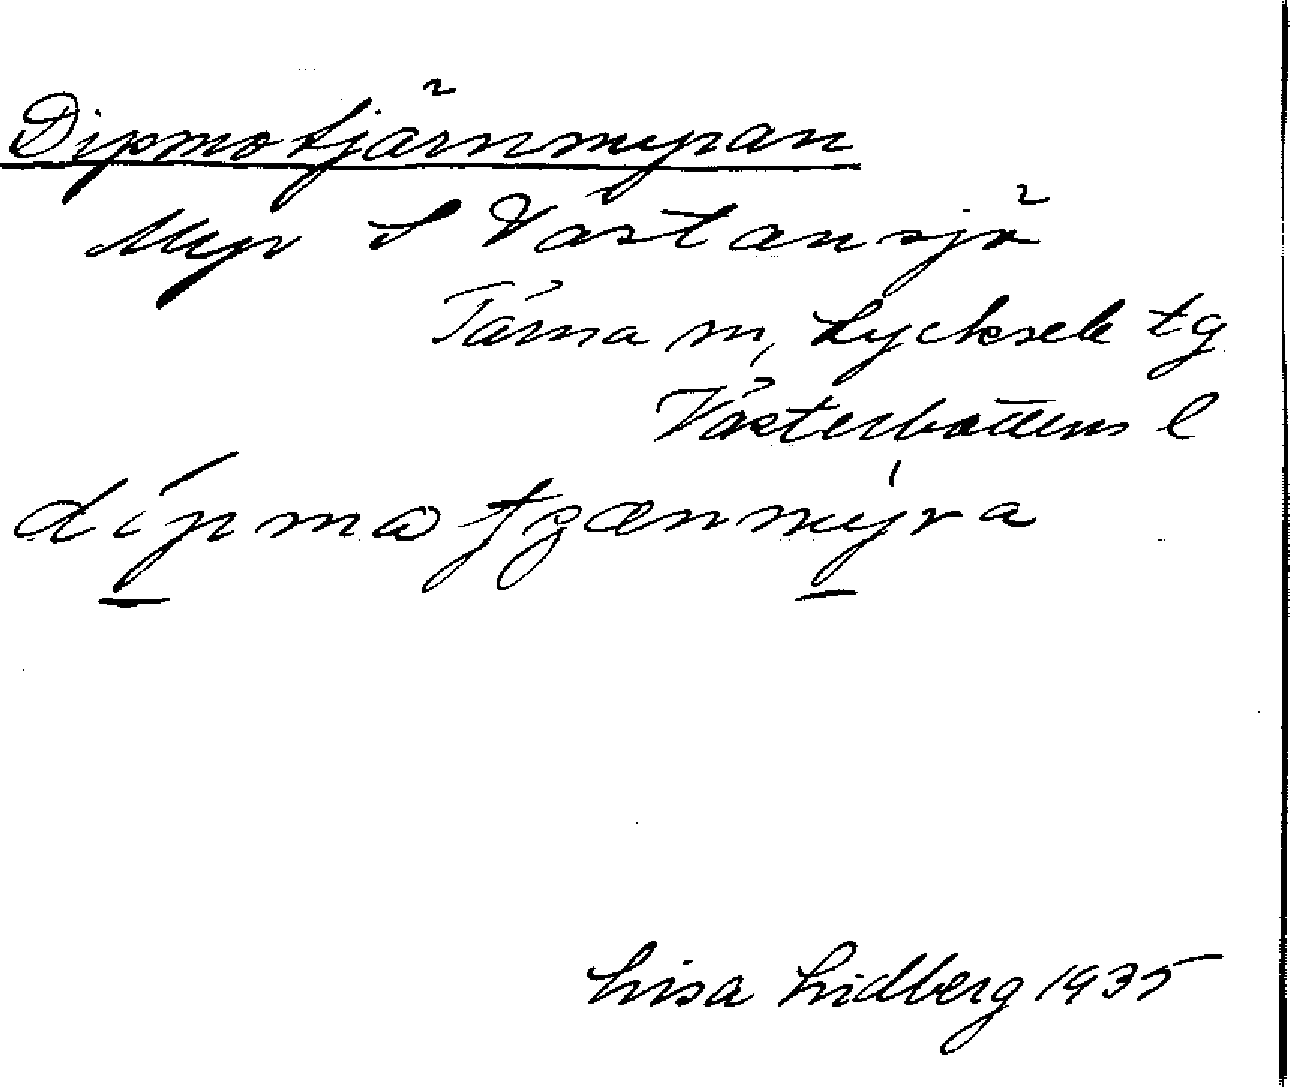 Dipmotjärnmyran
Myr S Västansjö
Tärna sn, Lycksele tg
Västerbottens l
dípmatjænmýra
Lisa Lidberg 1935